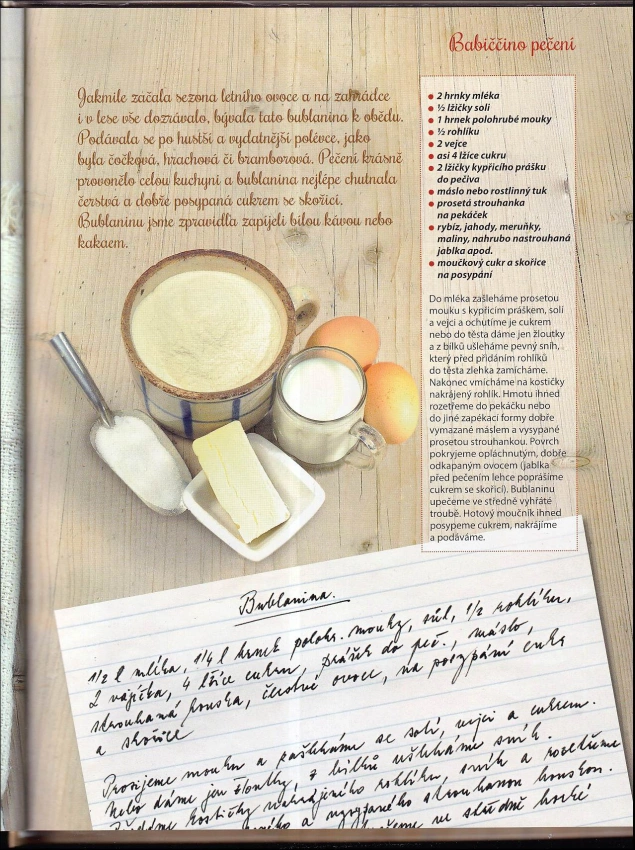 Babiččino pečení
Jakmile začala sezona letního ovoce a na zahrádce
i v lese vše dozrávalo, bývala tato bublanina k obědu.
Podávala se po hustší a vydatnější polévce, jako
byla čočková, hrachová či bramborová. Pečení krásně
provonělo celou kuchyni a bublanina nejlépe chutnala
čerstvá a dobře posypaná cukrem se skořicí.
Bublaninu jsme zpravidla zapíjeli bílou kávou nebo
kakaem.
• 2 hrnky mléka
• ½ lžičky soli
• 1 hrnek polohrubé mouky
• ½ rohlíku
• 2 vejce
• asi 4 lžíce cukru
• 2 lžičky kypřicího prášku
do pečiva
• máslo nebo rostlinný tuk
• prosetá strouhanka
na pekáček
• rybíz, jahody, meruňky,
maliny, nahrubo nastrouhaná
jablka apod.
• moučkový cukr a skořice
na posypání
Do mléka zašleháme prosetou
mouku s kypřicím práškem, solí
a vejci a ochutíme je cukrem
nebo do těsta dáme jen žloutky
a z bílků ušleháme pevný sníh,
který před přidáním rohlíků
do těsta zlehka zamícháme.
Nakonec vmícháme na kostičky
nakrájený rohlík. Hmotu ihned
rozetřeme do pekáčku nebo
do jiné zapékací formy dobře
vymazané máslem a vysypané
prosetou strouhankou. Povrch
pokryjeme opláchnutým, dobře
odkapaným ovocem (jablka
před pečením lehce poprášíme
cukrem se skořicí). Bublaninu
upečeme ve středně vyhřáté
troubě. Hotový moučník ihned
posypeme cukrem, nakrájíme
a podáváme.
Bublanina.
1/2 l mléka, 1/4 l hrnek polohr. mouky, sůl, 1/2 rohlíku,
2 vajíčka, 4 lžíce cukru, prášek do peč., máslo,
strouhaná houska, čerstvé ovoce, na posypání cukr
a skořice
Prosijeme mouku a zašleháme se solí, vejci a cukrem.
Nebo dáme jen žloutky, z bílků ušleháme sníh.
kostičky nakrájeného rohlíku, sníh a rozetřeme
a vysypaného strouhanou houskou.
ve středně horké